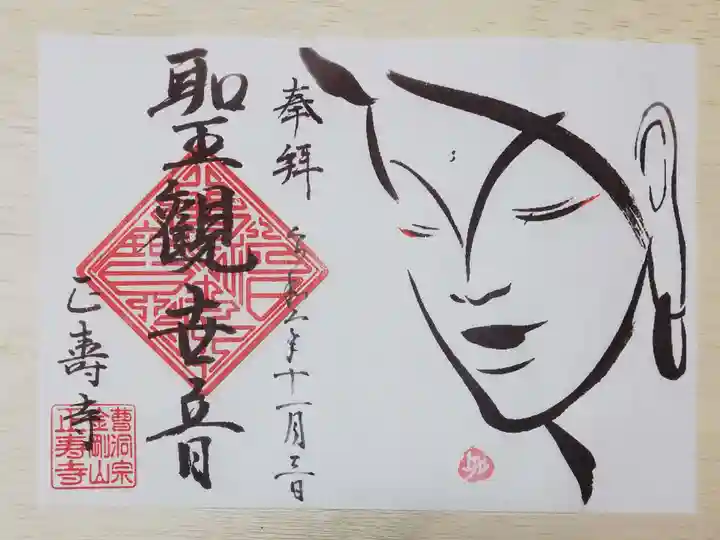 奉拝
令和二年十一月三日
聖観世音
正壽寺
曹洞宗
金剛山
正寿寺